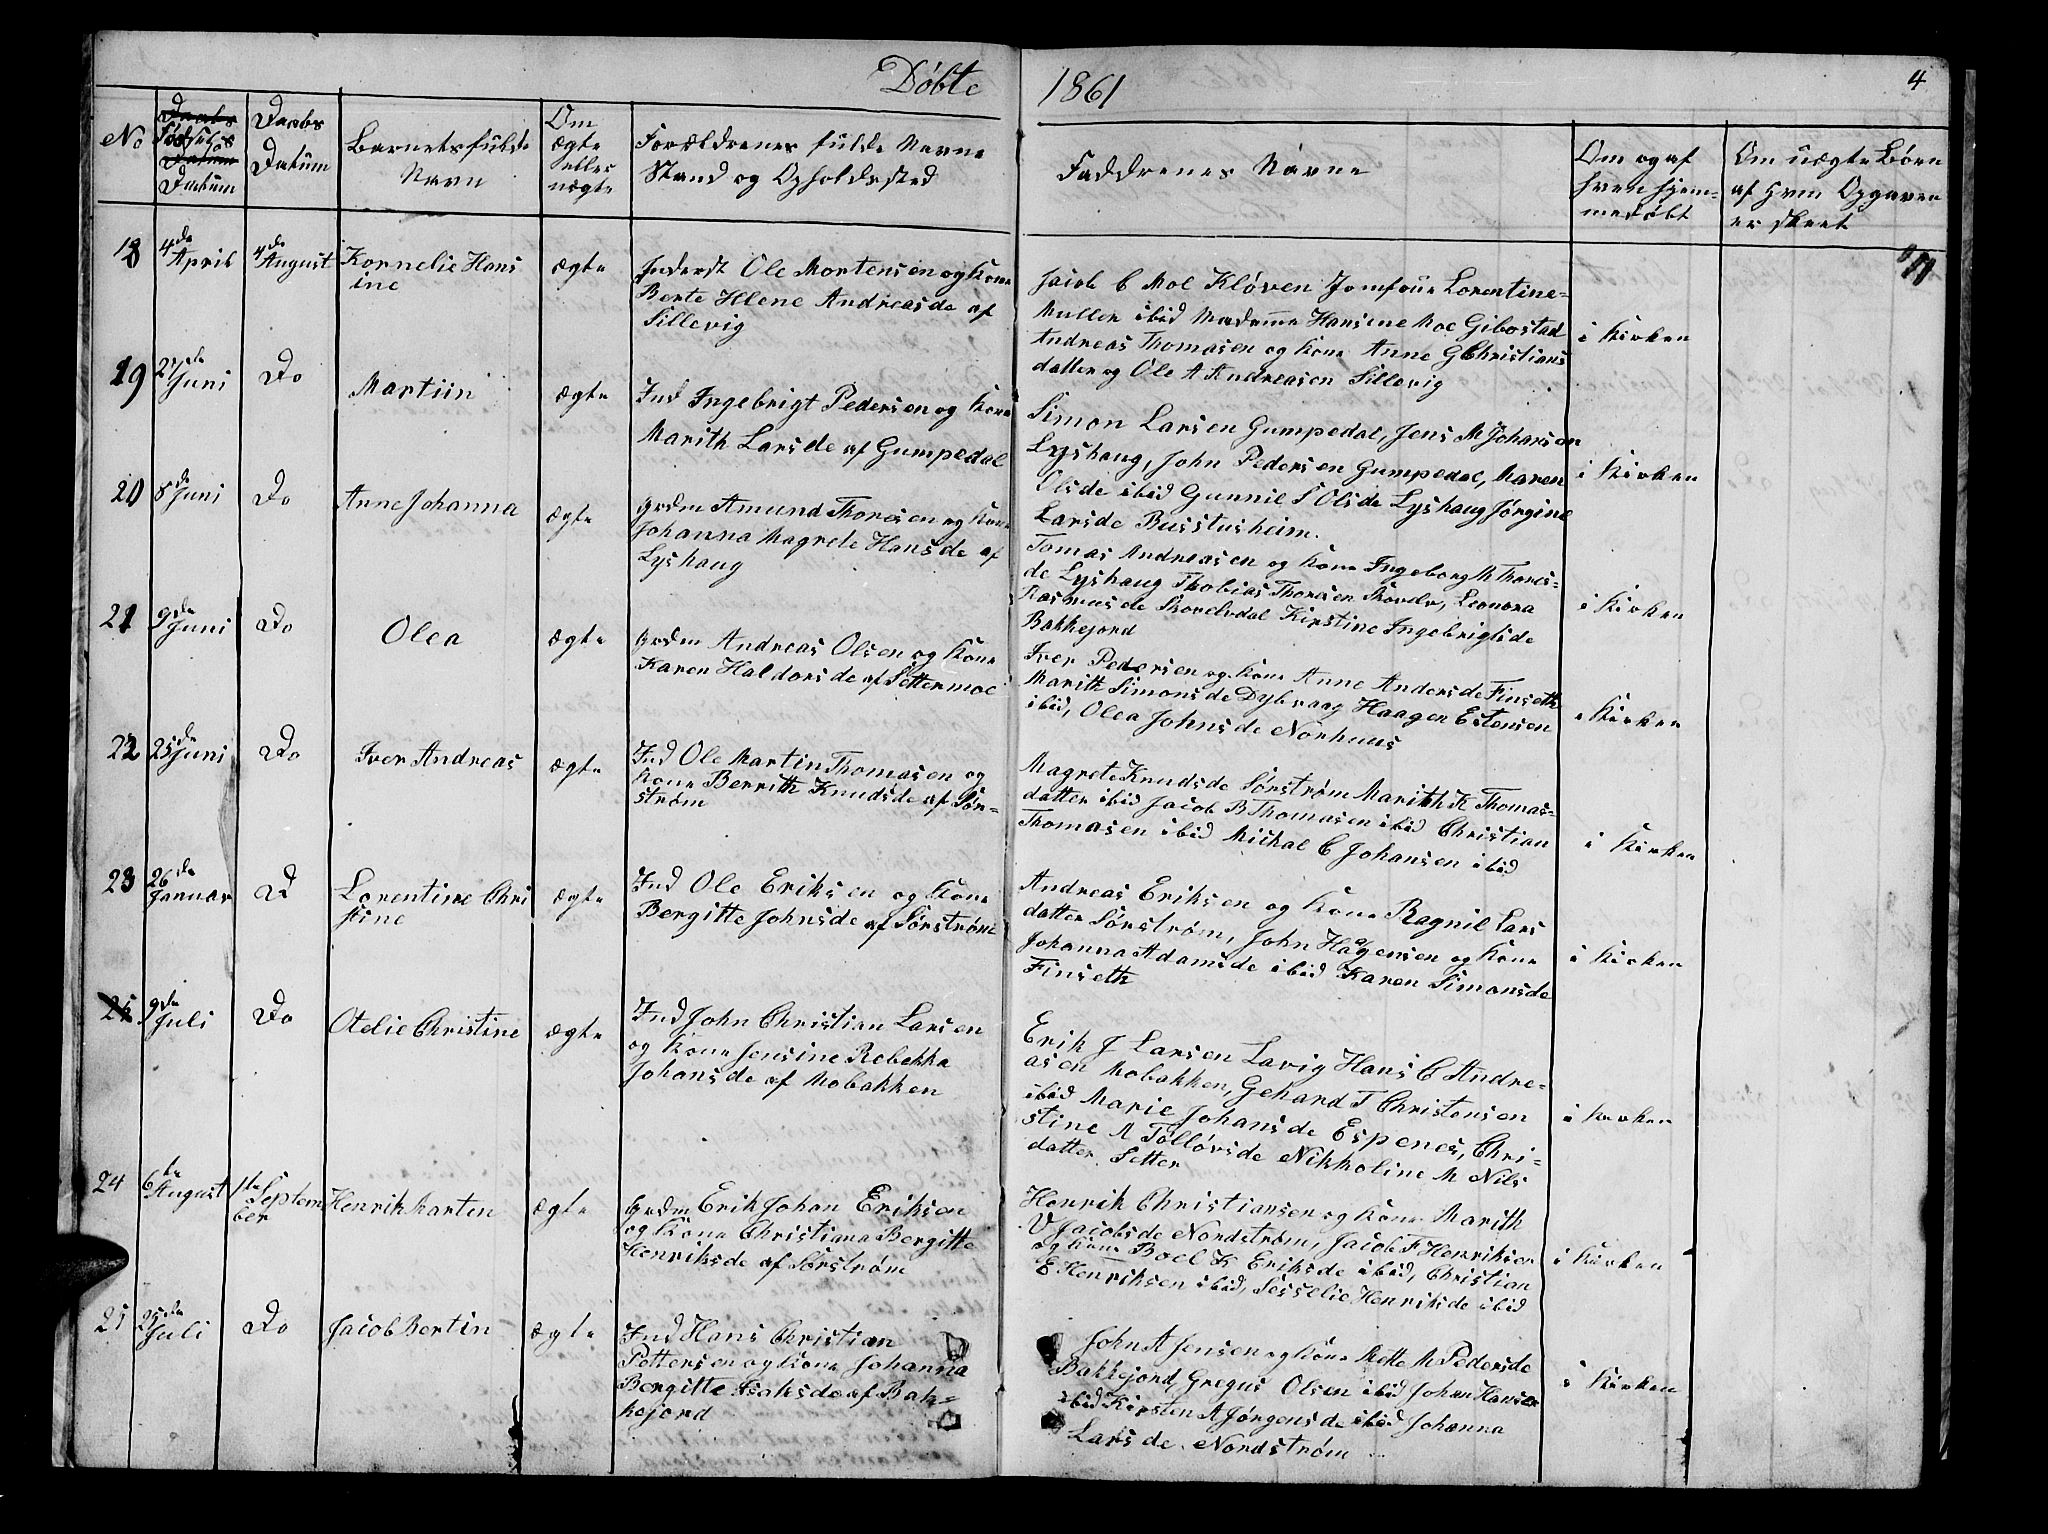 Døbte
1861
4
No
Fødsels
Datum
Daabs
Datum
Barnets fulde
Navn
Om
ægte
eller
uægte
Forældrenes fulde Navne
Stand og Opholdssted
Faddrenes Navne
Om og af
hvem hjem-
medøbt
Om uægte Børn
af hvem Opgaven
er skeet
18
4de April
4de August
Kornelie Hans
ine
ægte
Inderst Ole Mortensen og Kone
Berte Hlene Andreasde af
Sillevig
Jacob C Moe Kløven Jomfrue Lorentine
Muller ibid Madame Hansine Moe Gibostad
Andreas Thomasen og Kone Anne G Christians
datter og Ole A Andreasen Sillevig
i Kirken
19
27de Juni
Do
Martiin
ægte
Ind Ingebrigt Pedersen og Kone
Marith Larsde af Gumpedal
Simon Larsen Gumpedal, Jens M Johansen
Lyshaug, John Pedersen Gumpedal, Maren
Olsde ibid Gunnil S Olsde Lyshaug Jørgine
Larsde Busstusheim.
i Kirken
20
8de Juni
Do
Anne Johanna
ægte
Grdm Amund Thoresen og Kone
Johanna Magrete Hansde af
Lyshaug
Tomas Andreasen og Kone Ingeborg M Thores-
de Lyshaug Thobias Thoresen Skovelv, Leonora
Rasmusde Skovelvdal Kirstine Ingebrigtsde
Bakkejord
i Kirken
21
9de Juni
Do
Olea
ægte
Grdm Andreas Olsen og Kone
Karen Haldorsde af Settermoe
Iver Pedersen og Kone Anne Andersde Finseth
Marith Simonsde Dybvaag Haagen Estensen
ibid, Olea Johnsde Norhuus
i Kirken
22
25de Juni
Do
Iver Andreas
ægte
Ind Ole Martin Thomasen og
Kone Berrith Knudsde af Sør-
strøm
Magrete Knudsde Sørstrøm Marith K Thomas-
datter ibid Jacob B Thomasen ibid Christian
Thomasen ibid Michal C Johansen ibid
i Kirken
23
26de Januar
D
Lorentine Chri
stine
ægte
Ind Ole Eriksen og Kone
Bergitte Johnsde af Sørstrøm
Andreas Eriksen og Kone Ragnil Lars
datter Sørstrøm, John Haagensen og Kone
Johanna Adamsde ibid Karen Simonsde
Finseth
i Kirken
9de Juli
Do
Otelie Christine
ægte
Ind John Christian Larsen
og Kone Jensine Rebekka
Johansde af Mobakken
Erik J Larsen Lavig Hans C Andre-
asen Mobakken, Gehard T Christensen
ibid Marie Johansde Espenes, Chri-
stine A Tølløvsde Nikkoline M Nils
datter Setter
i Kirken
24
6te August
1te Septem
ber
Henrik Marten
ægte
Grdm Erik Johan Eriksen
og Kone Christiana Bergitte
Henriksde af Sørstrøm
Henrik Christiansen og Kone Marith
V Jacobsde Nordstrøm, Jacob F Henriksen
og Kone Boel K Eriksde ibid, Christian
E Henriksen ibid, Sesselie Henriksde ibid
i Kirken
25
25de Juli
Do
Jacob Bertin
ægte
Ind Hans Christian
Pettersen og Kone Johanna
Bergitte Isaksde af Bak-
kejord
John A Jensen og Kone Mette M Pedersde
Bakkejord, Gregus Olsen ibid Johan Hansen
ibid Kirsten A Jørgensde ibid Johanna
Larsde Nordstrøm
i Kirken